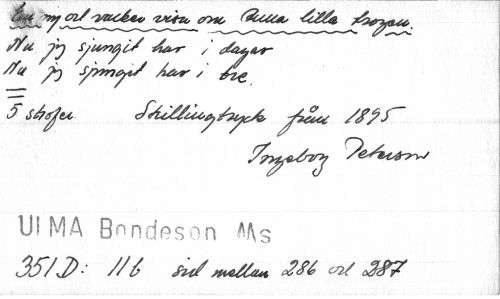 En ny och vacker visa om Anna lilla trogen.
Nu jag sjungit har i dagar
Nu jag sjungit har i tre.
5 strofer Skillingtryck från 1895
Ingeborg Peterson
ULMA Bondeson Ms
351 D: 11 b sid mellan 286 och 287